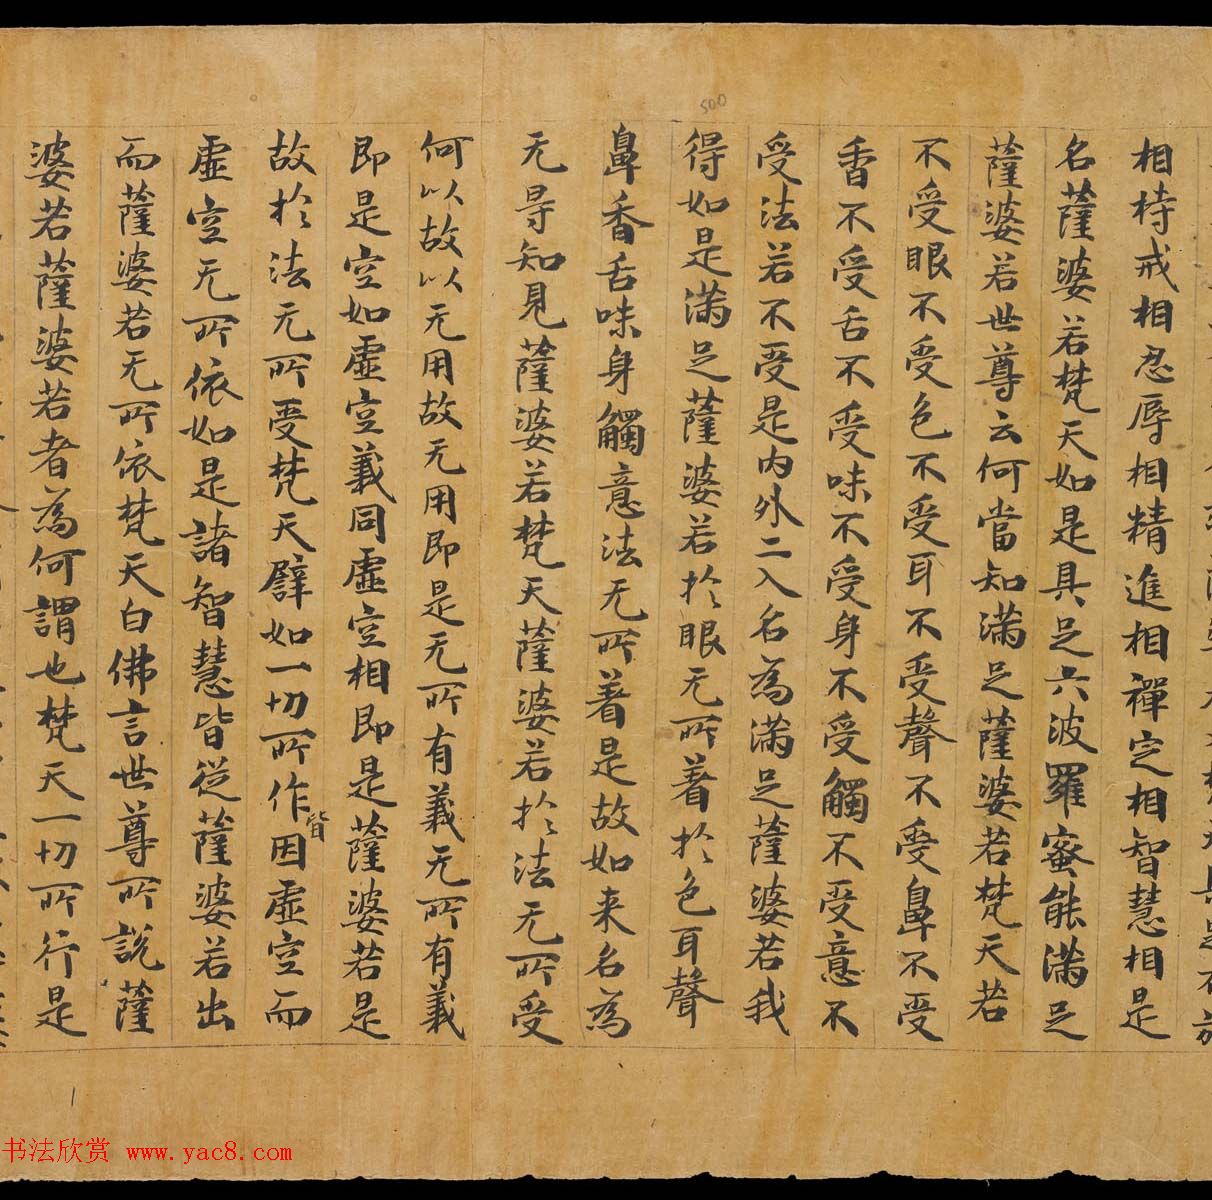 相持戒相忍辱相精進相禪定相智慧相是
名薩婆若梵天如是具足六波羅蜜能滿足
薩婆若世尊云何當知滿足薩婆若梵天若
不受眼不受色不受耳不受聲不受鼻不受
香不受舌不受味不受身不受觸不受意不
受法若不受是内外二入名為滿足薩婆若我
得如是滿足薩婆若於眼无所著於色耳聲
鼻香舌味身觸意法无所著是故如来名為
无㝵知見薩婆若梵天薩婆若於法无所受
何以故以无用故无用即是无所有義无所有義
即是空如虛空義同虛空相即是薩婆若是
故於法无所受梵天譬如一切所作皆因虛空而
虛空无所依如是諸智慧皆從薩婆若出
而薩婆若无所依梵天白佛言世尊所說薩
婆若薩婆若者為何謂也梵天一切所行是
500
书法欣赏 www.yac8.com